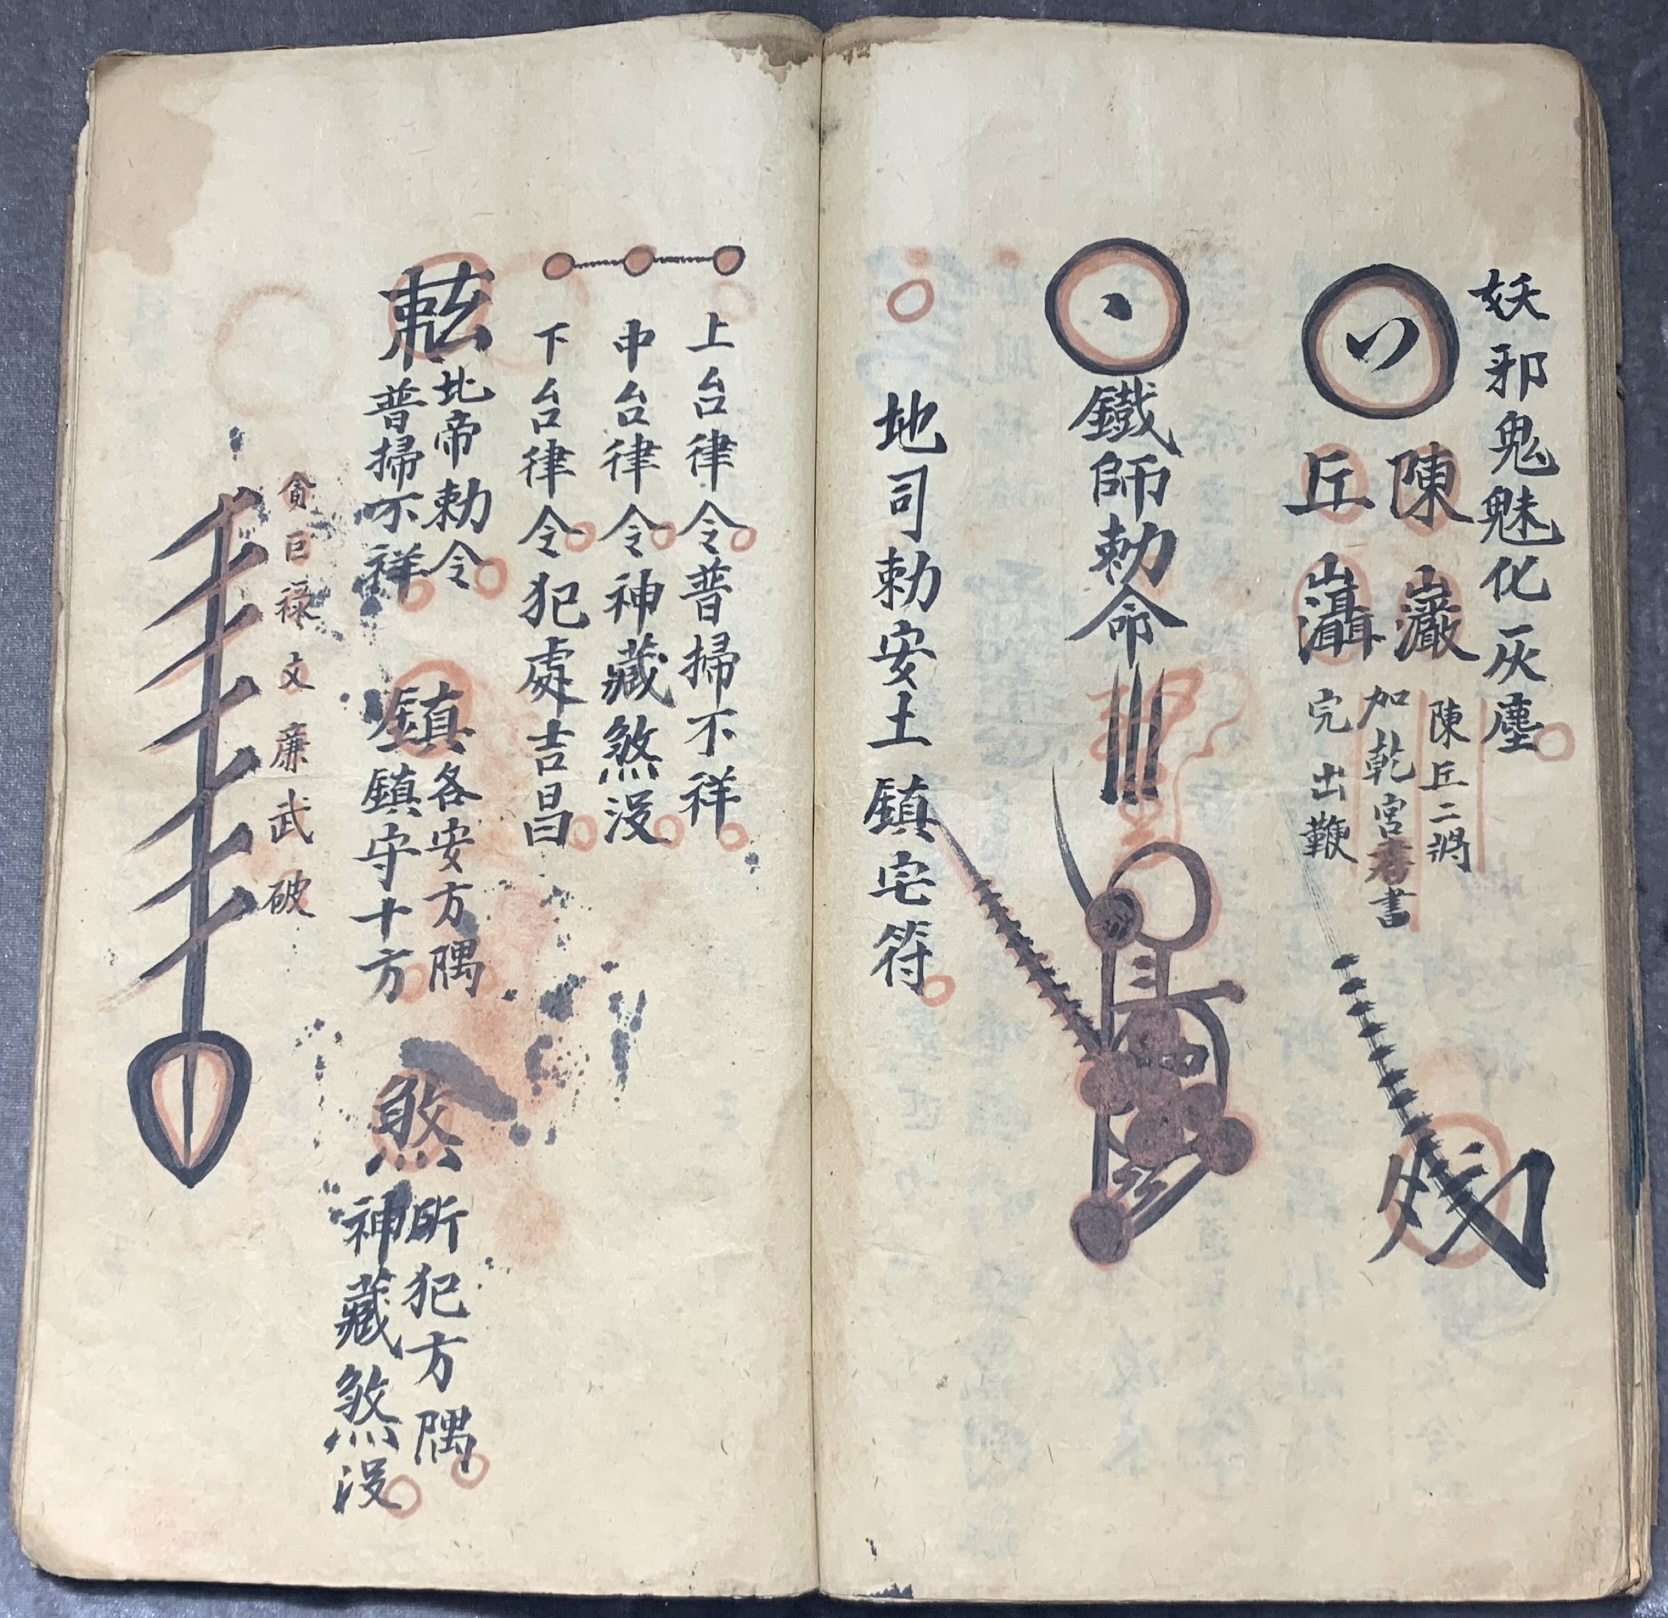 妖邪鬼魅化一灰塵
陳
丘
巖
陳丘二將
加乾宮書
完出鞭
鐵師勅命
地司勅安土鎮宅符
上台律令普掃不祥
中台律令神藏煞没
下台律令犯處吉昌
北帝勅令
普掃不祥
鎮
各安方隅
鎮守十方
煞
所犯方隅
神藏煞没
貪巨禄文廉武破